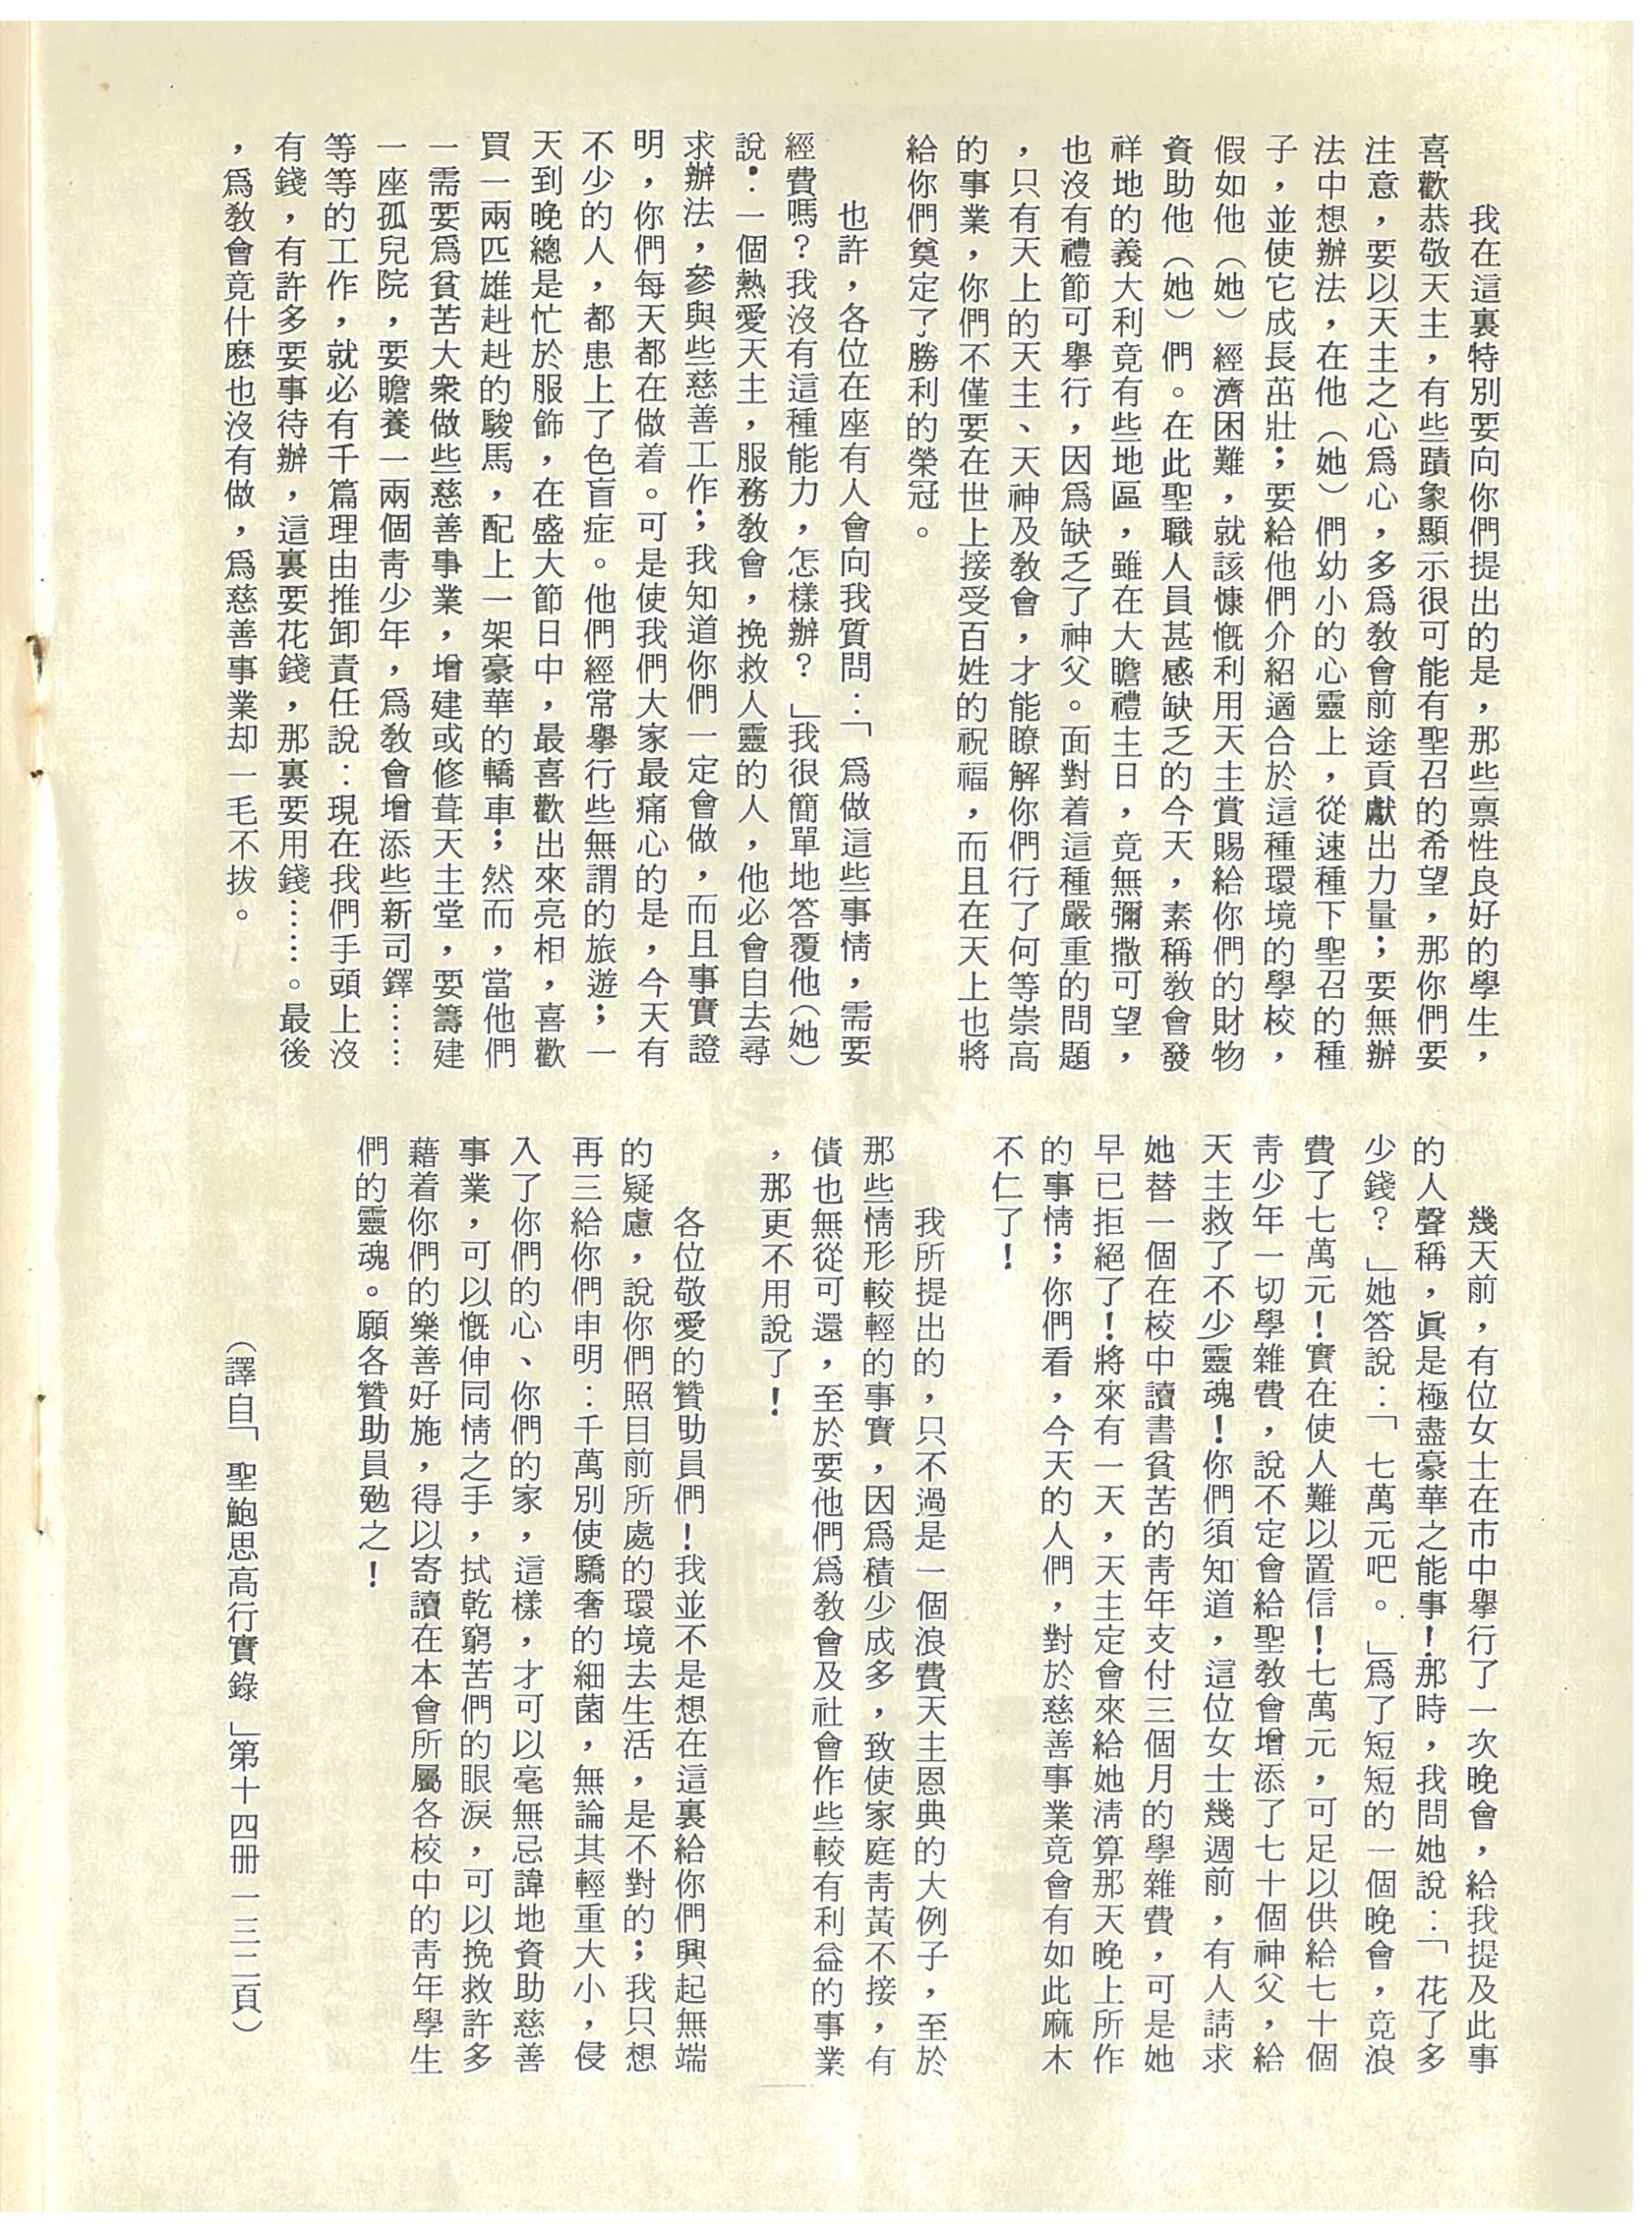 我在這裏特別要向你們提出的是，那些禀性良好的學生，
喜歡恭敬天主，有些蹟象顯示很可能有聖召的希望，那你們要
注意，要以天主之心爲心，多爲教會前途貢獻出力量；要無辦
法中想辦法，在他（她）們幼小的心靈上，從速種下聖召的種
子，並使它成長茁壯；要給他們介紹適合於這種環境的學校，
假如他（她）經濟困難，就該慷慨利用天主賞賜給你們的財物
資助他（她）們。在此聖職人員甚感缺乏的今天，素稱教會發
祥地的義大利竟有些地區，雖在大瞻禮主日，竟無彌撒可望，
也沒有禮節可舉行，因爲缺乏了神父。面對着這種嚴重的問題
，只有天上的天主、天神及教會，才能瞭解你們行了何等崇高
的事業，你們不僅要在世上接受百姓的祝福，而且在天上也將
給你們奠定了勝利的榮冠。
也許，各位在座有人會向我質問：「爲做這些事情，需要
經費嗎？我沒有這種能力，怎樣辦？」我很簡單地答覆他（她）
說：一個熱愛天主，服務教會，挽救人靈的人，他必會自去尋
求辦法，參與些慈善工作；我知道你們一定會做，而且事實證
明，你們每天都在做着。可是使我們大家最痛心的是，今天有
不少的人，都患上了色盲症。他們經常舉行些無謂的旅遊；一
天到晚總是忙於服飾，在盛大節日中，最喜歡出來亮相，喜歡
買一兩匹雄赳赳的駿馬，配上一架豪華的轎車；然而，當他們
一需要爲貧苦大衆做些慈善事業，增建或修葺天主堂，要籌建
一座孤兒院，要贍養一兩個青少年，爲教會增添些新司鐸……
等等的工作，就必有千篇理由推卸責任說：現在我們手頭上沒
有錢，有許多要事待辦，這裏要花錢，那裏要用錢……。最後
，爲教會竟什麽也沒有做，爲慈善事業却一毛不拔。
幾天前，有位女士在市中舉行了一次晚會，給我提及此事
的人聲稱，眞是極盡豪華之能事！那時，我問她說：「花了多
少錢？」她答說：「七萬元吧。」爲了短短的一個晚會，竟浪
費了七萬元！實在使人難以置信！七萬元，可足以供給七十個
青少年一切學雜費，說不定會給聖教會增添了七十個神父，給
天主救了不少靈魂！你們須知道，這位女士幾週前，有人請求
她替一個在校中讀書貧苦的青年支付三個月的學雜費，可是她
早已拒絕了！將來有一天，天主定會來給她淸算那天晚上所作
的事情；你們看，今天的人們，對於慈善事業竟會有如此麻木
不仁了！
我所提出的，只不過是一個浪費天主恩典的大例子，至於
那些情形較輕的事實，因爲積少成多，致使家庭青黃不接，有
債也無從可還，至於要他們爲教會及社會作些較有利益的事業
，那更不用說了！
各位敬愛的贊助員們！我並不是想在這裏給你們興起無端
的疑慮，說你們照目前所處的環境去生活，是不對的；我只想
再三給你們申明：千萬別使驕奢的細菌，無論其輕重大小，侵
入了你們的心、你們的家，這樣，才可以毫無忌諱地資助慈善
事業，可以慨伸同情之手，拭乾窮苦們的眼淚，可以挽救許多
藉着你們的樂善好施，得以寄讀在本會所屬各校中的青年學生
們的靈魂。願各贊助員勉之！
（譯自「聖鮑思高行實錄」第十四册一三二頁）